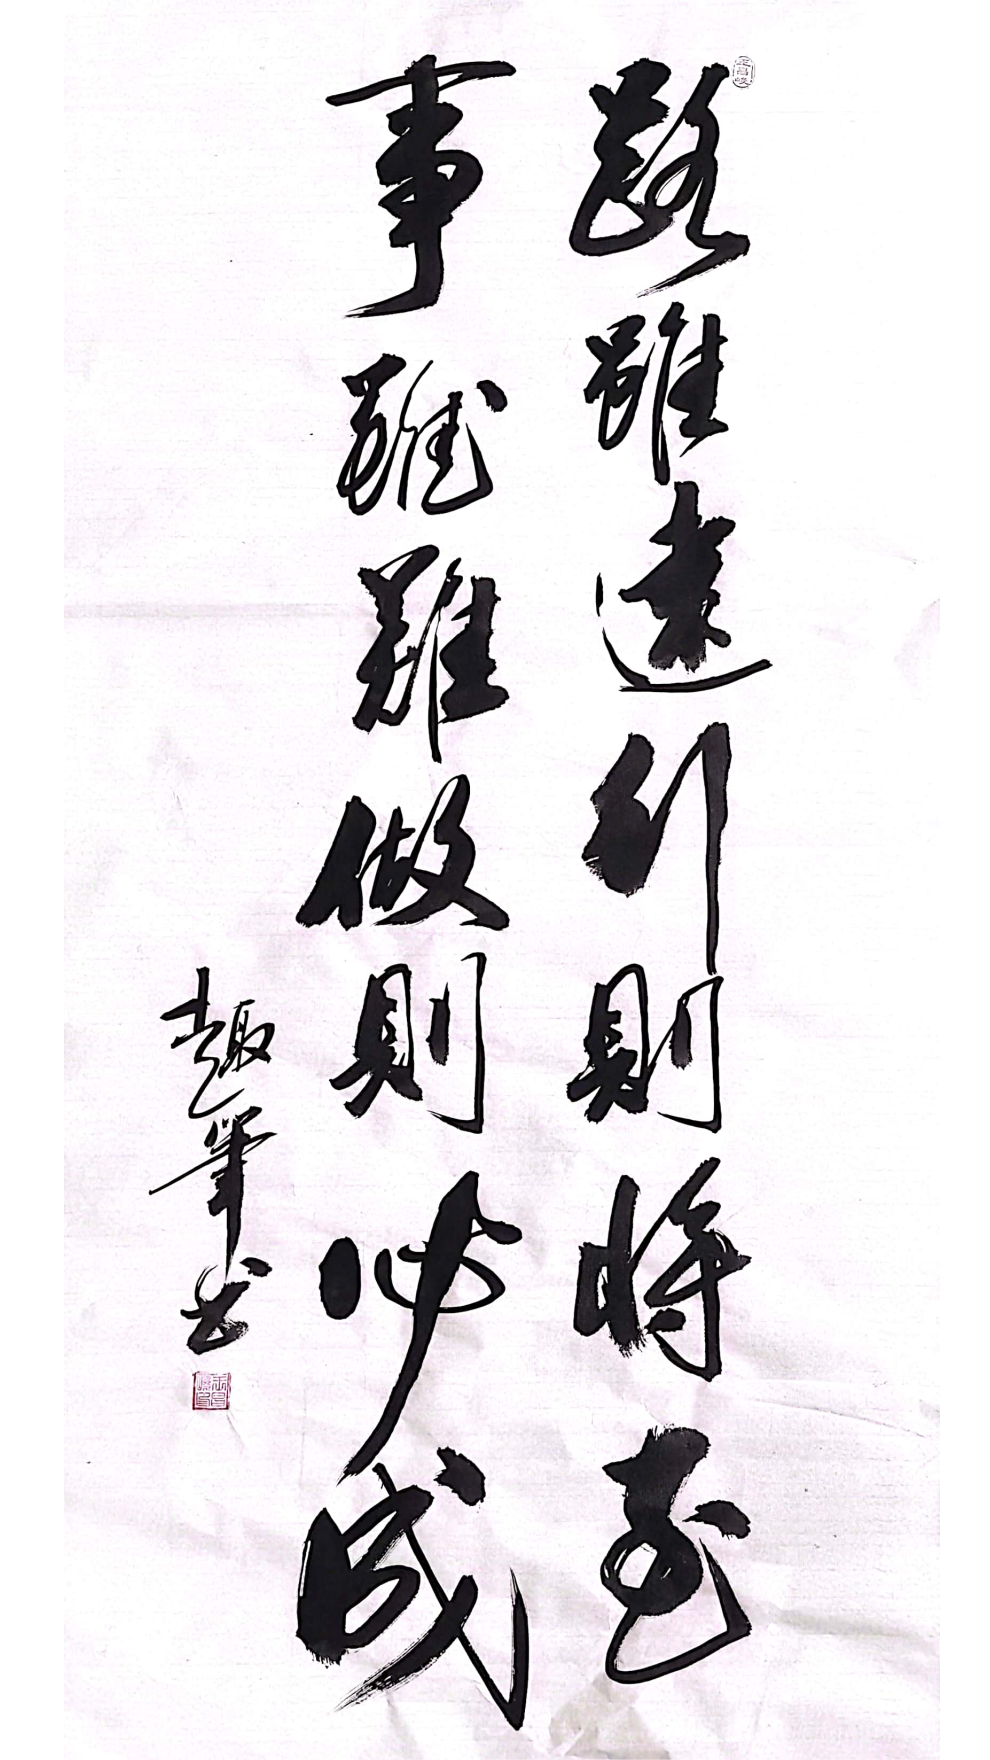 路雖遠行則將至
事雖難做則必成
趣筆书